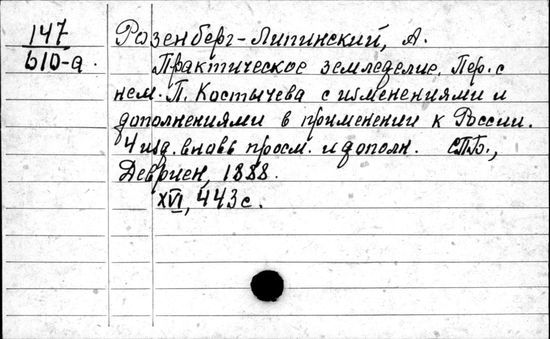 147
б10-а.
Розенберг-Липинский, А.
Практическое земледелие. Пер. с
нем. П. Костычева с изменениями и
дополнениями в применении к России.
4 изд. вновь просм. и дополн. СПб.,
Девриен, 1888.
XVI, 443 с.